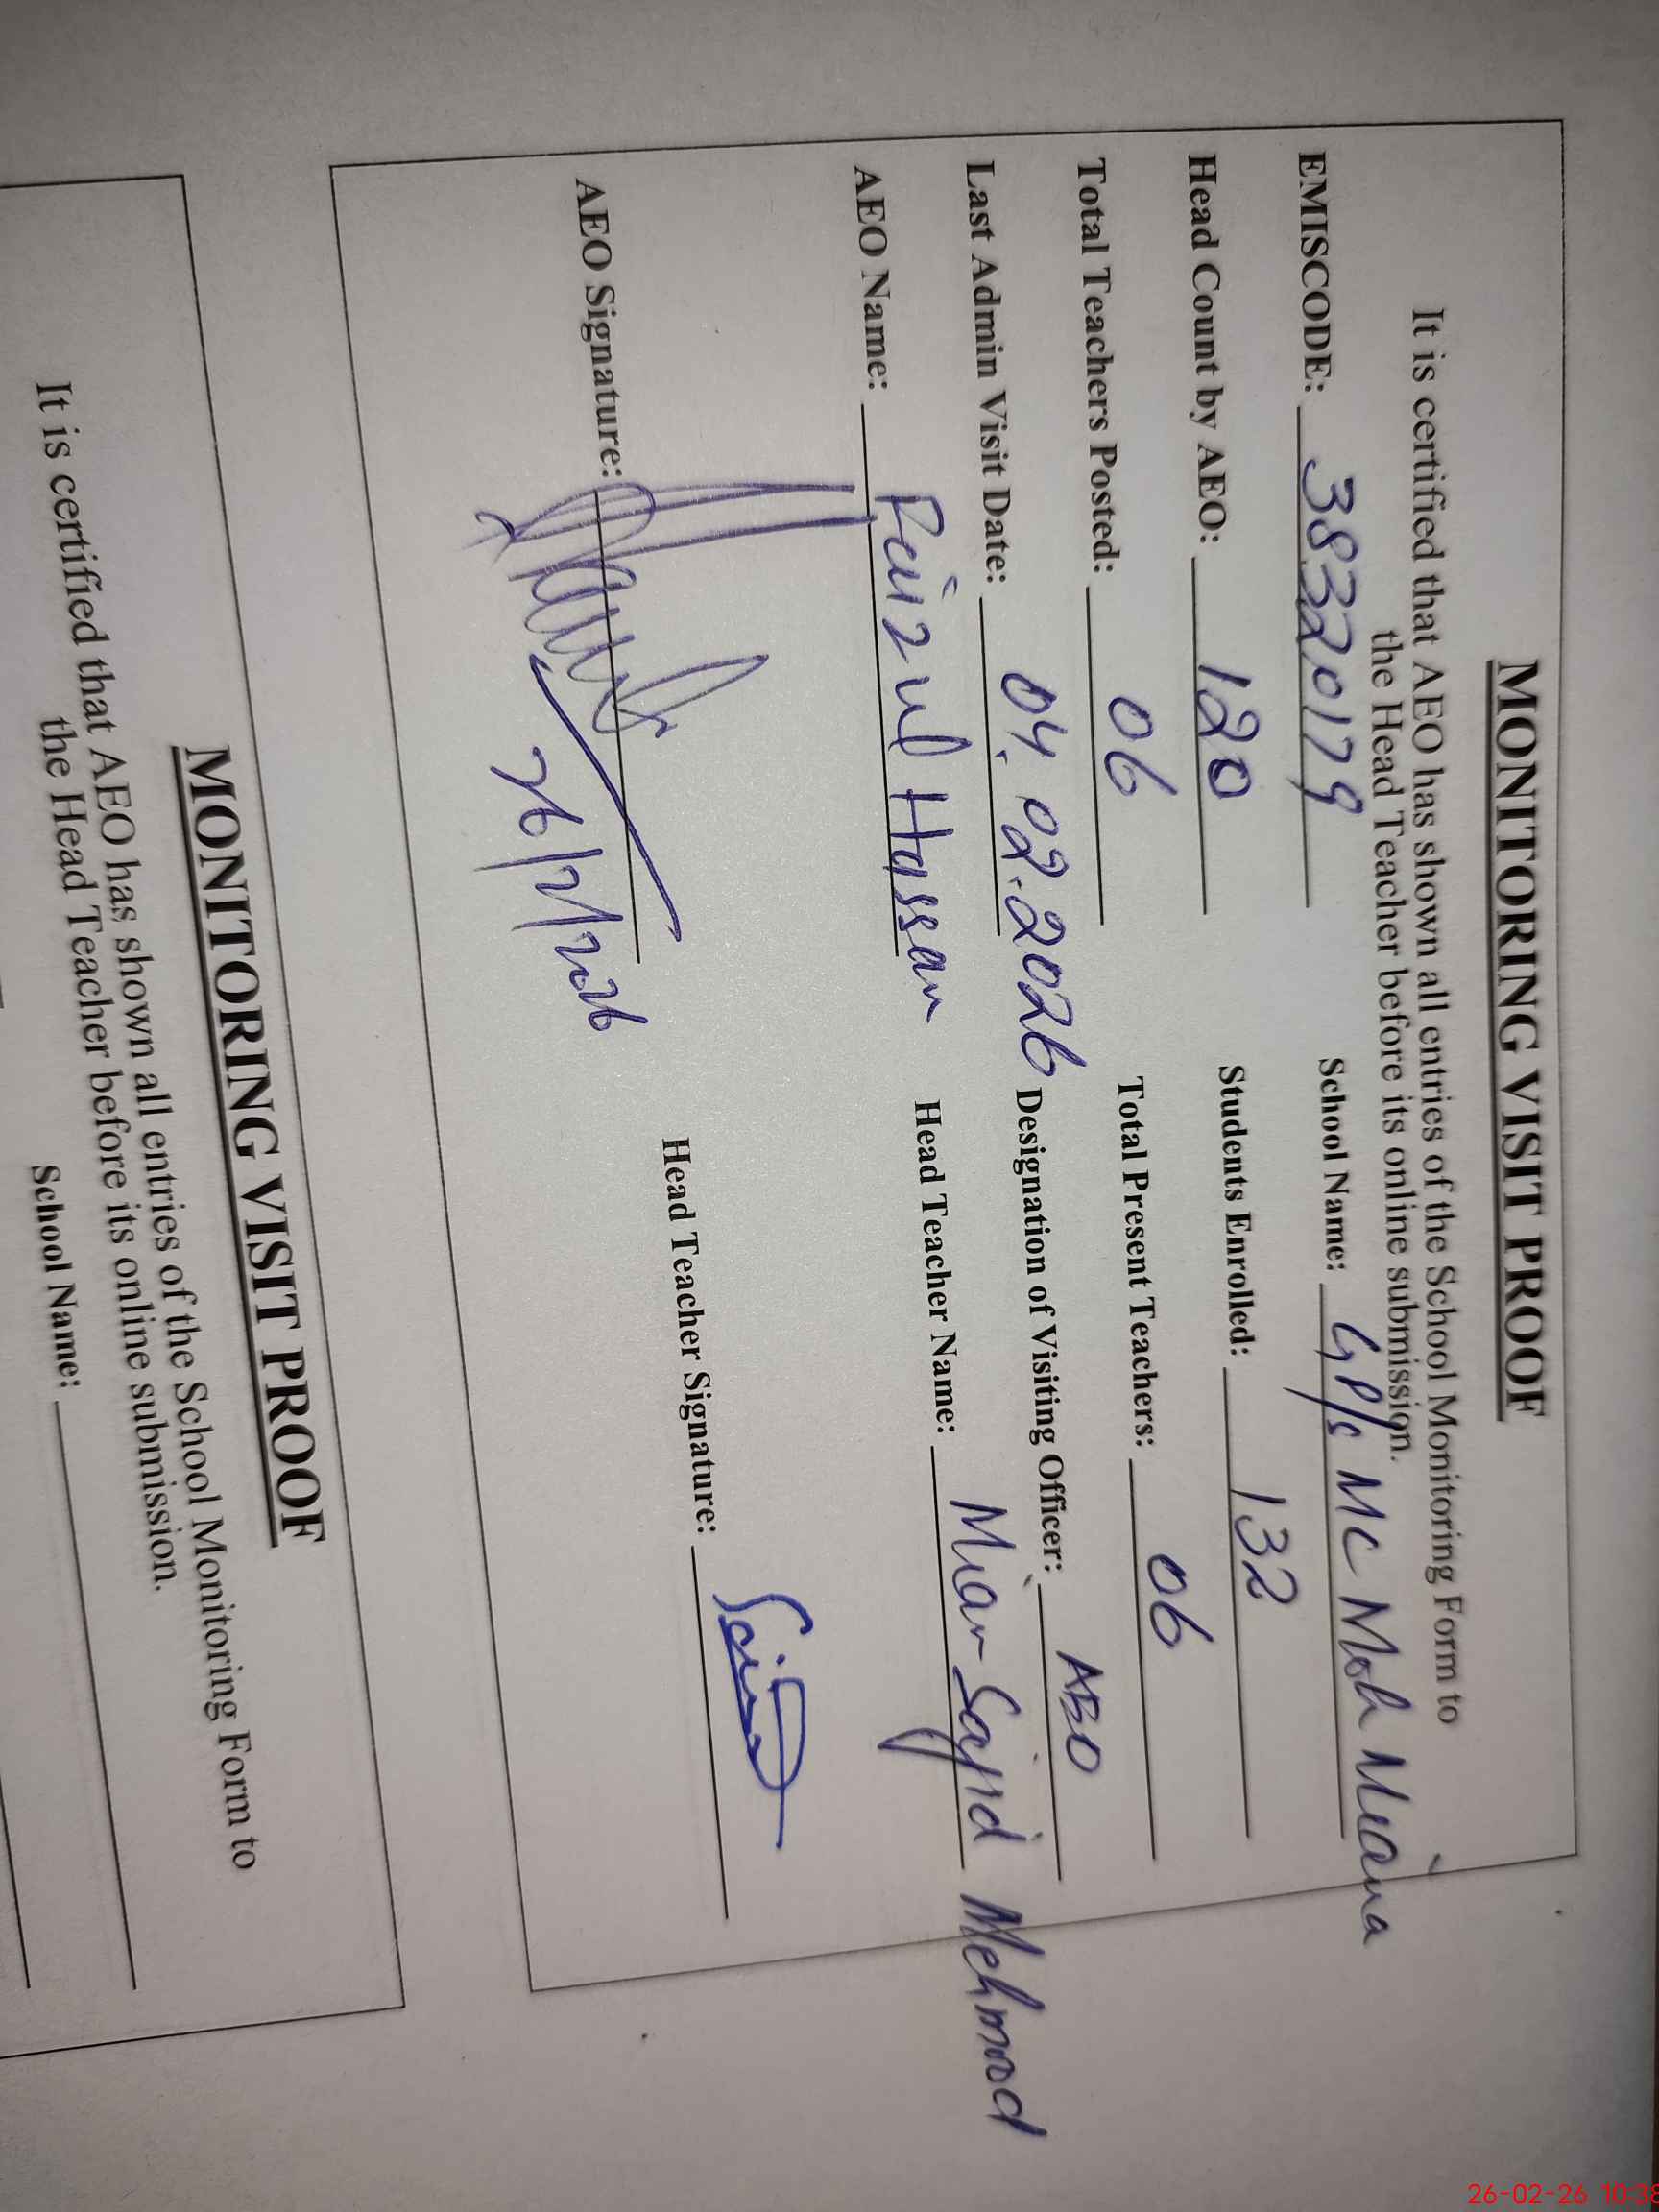 MONITORING VISIT PROOF
It is certified that AEO has shown all entries of the School Monitoring Form to
the Head Teacher before its online submission.
EMISCODE: 38320179 School Name: GP/s MC Moh Miana
Head Count by AEO: 120 Students Enrolled: 132
Total Teachers Posted: 06 Total Present Teachers: 06
Last Admin Visit Date: 04.02.2026 Designation of Visiting Officer: AEO
AEO Name: Faiz ul Hassan Head Teacher Name: Mian Sajid Mehmood
AEO Signature: Head Teacher Signature:
26/2/2026
MONITORING VISIT PROOF
It is certified that AEO has shown all entries of the School Monitoring Form to
the Head Teacher before its online submission.
School Name:
26-02-26 10:38